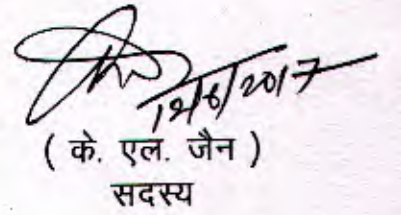 12/6/2017
( के. एल. जैन )
सदस्य